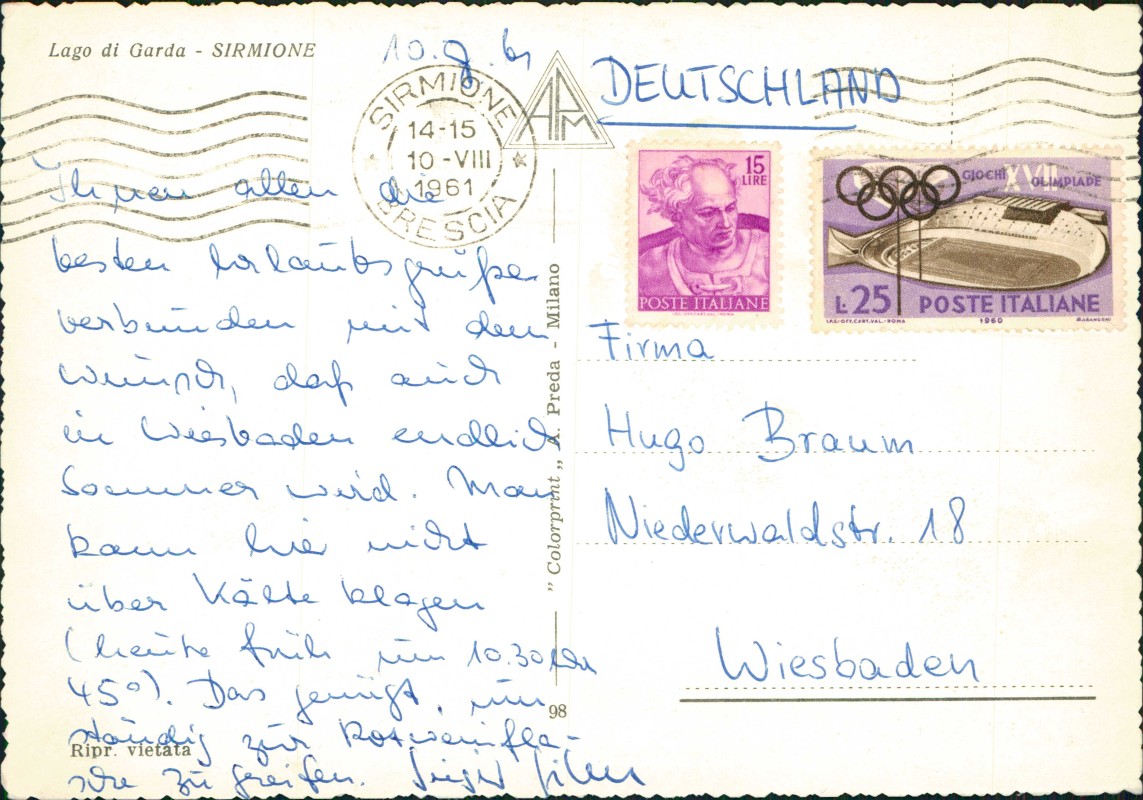 Lago di Garda - SIRMIONE
10. 8. 61
DEUTSCHLAND
SIRMIONE
14-15
10-VIII
1961
BRESCIA
APM
15
LIRE
POSTE ITALIANE
IST. POL. STATO OFF. CARTE VALORI
GIOCHI XVII OLIMPIADE
L.25 POSTE ITALIANE
I.P.S.-OFF.CART.VAL.-ROMA
1960
Ihnen allen die
besten Urlaubsgrüße
verbunden mit dem
Wunsch, daß auch
in Wiesbaden endlich
Sommer wird. Man
kann hier nicht
über Kälte klagen
(heute früh um 10.30 Uhr
45°). Das genügt, um
ständig zur Rotweinfla-
sche zu greifen.
"Colorprint" A. Preda - Milano
98
Ripr. vietata
Firma
Hugo Braum
Niederwaldstr. 18
Wiesbaden